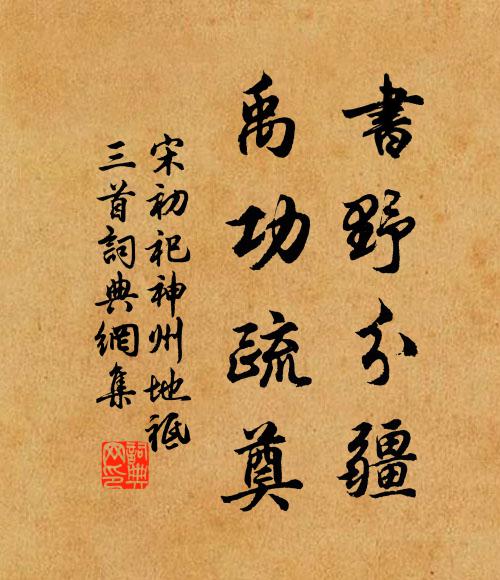 書野分疆
禹功疏奠
宋初祀神州地祇
三首詞典網集
詞典
网印